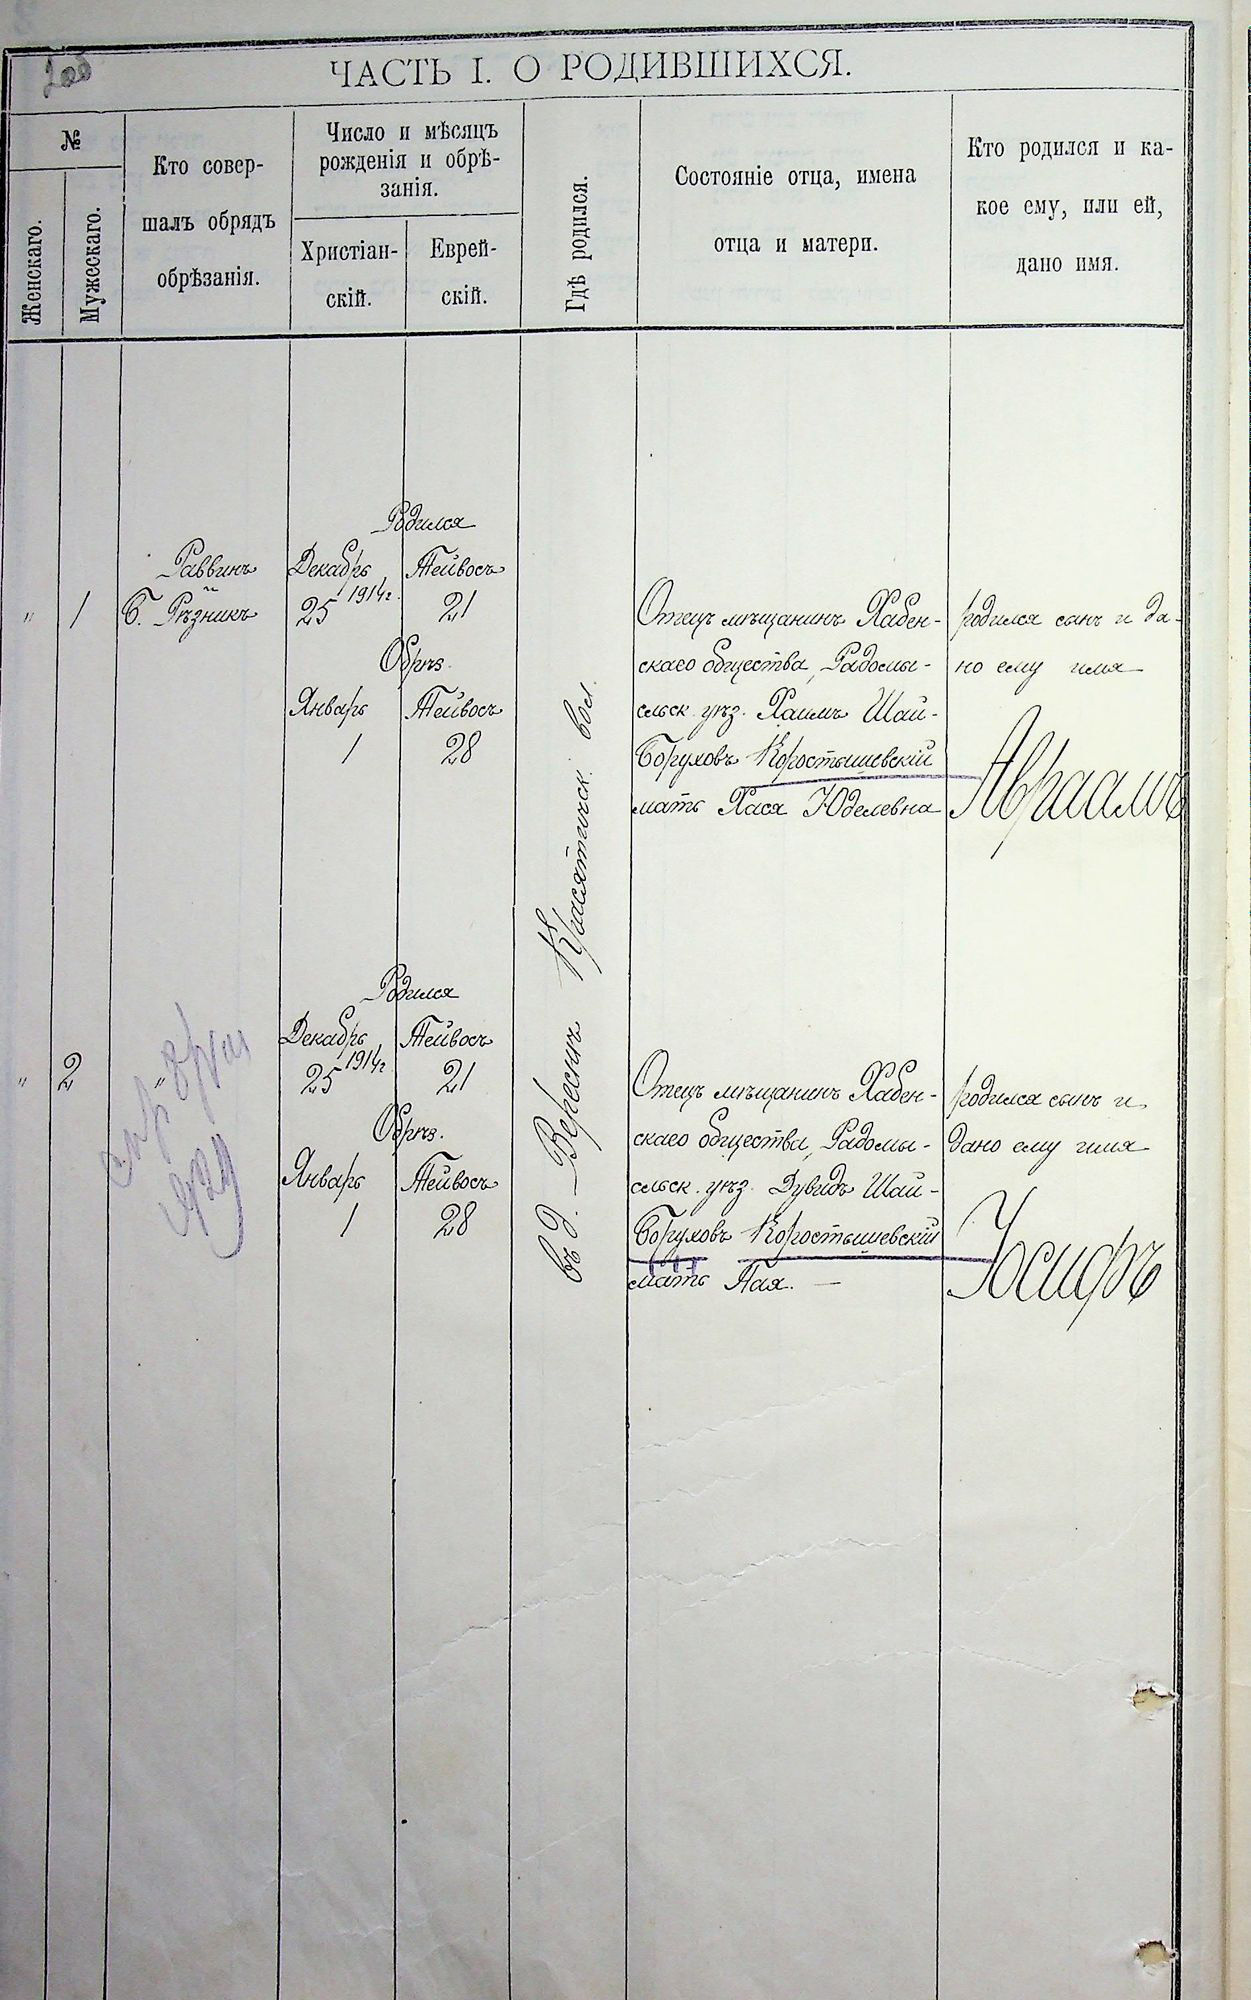 ЧАСТЬ I. О РОДИВШИХСЯ.
№
Женскаго.
Мужескаго.
Кто совер-
шалъ обрядъ
обрѣзанія.
Число и мѣсяцъ
рожденія и обрѣ-
занія.
Христіан-
скій.
Еврей-
скій.
Гдѣ родился.
Состояніе отца, имена
отца и матери.
Кто родился и ка-
кое ему, или ей,
дано имя.
" 1
Раввинъ
Б. Рѣзникъ
Родился
Декабрь Тейвосъ
25 1914г. 21
Обрѣз.
Январь Тейвосъ
1 28
въ д. Вереснѣ Красятичск. вол.
Отецъ мѣщанинъ Хабен-
скаго общества, Радомы-
сльск. уѣз. Хаимъ Шай-
Боруховъ Коростышевскій
мать Хася Юделевна
родился сынъ и да-
но ему имя
Авраамъ
" 2
"
Родился
Декабрь Тейвосъ
25 1914г 21
Обрѣз.
Январь Тейвосъ
1 28
Отецъ мѣщанинъ Хабен-
скаго общества, Радомы-
сльск. уѣз. Дувидъ Шай-
Боруховъ Коростышевскій
мать Пая. —
родился сынъ и
дано ему имя
Іосифъ